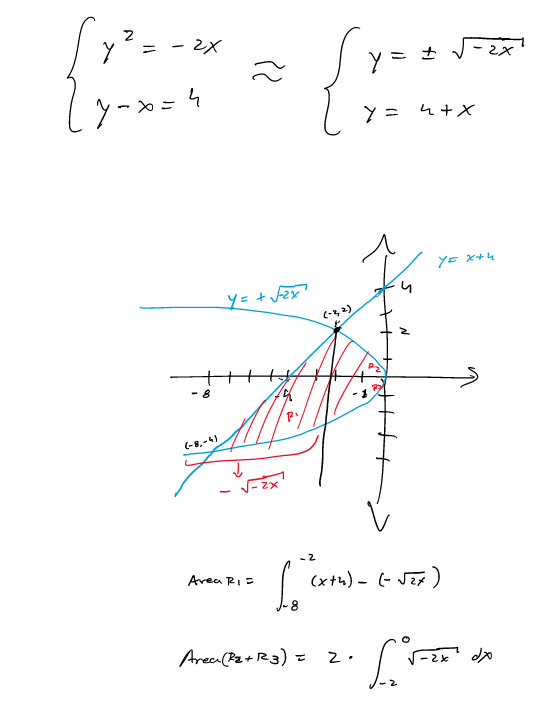 y² = -2x ≈ y = ± √-2x
y - x = 4 y = 4 + x
y = x+4
y = + √-2x
4
(-2,2)
2
-8 -4 -1
R2
R3
R1
(-8,-4)
- √-2x
Area R1 = ∫₋₈⁻² (x+4) - (- √2x)
Area(R2+R3) = 2 · ∫₋₂⁰ √-2x dx